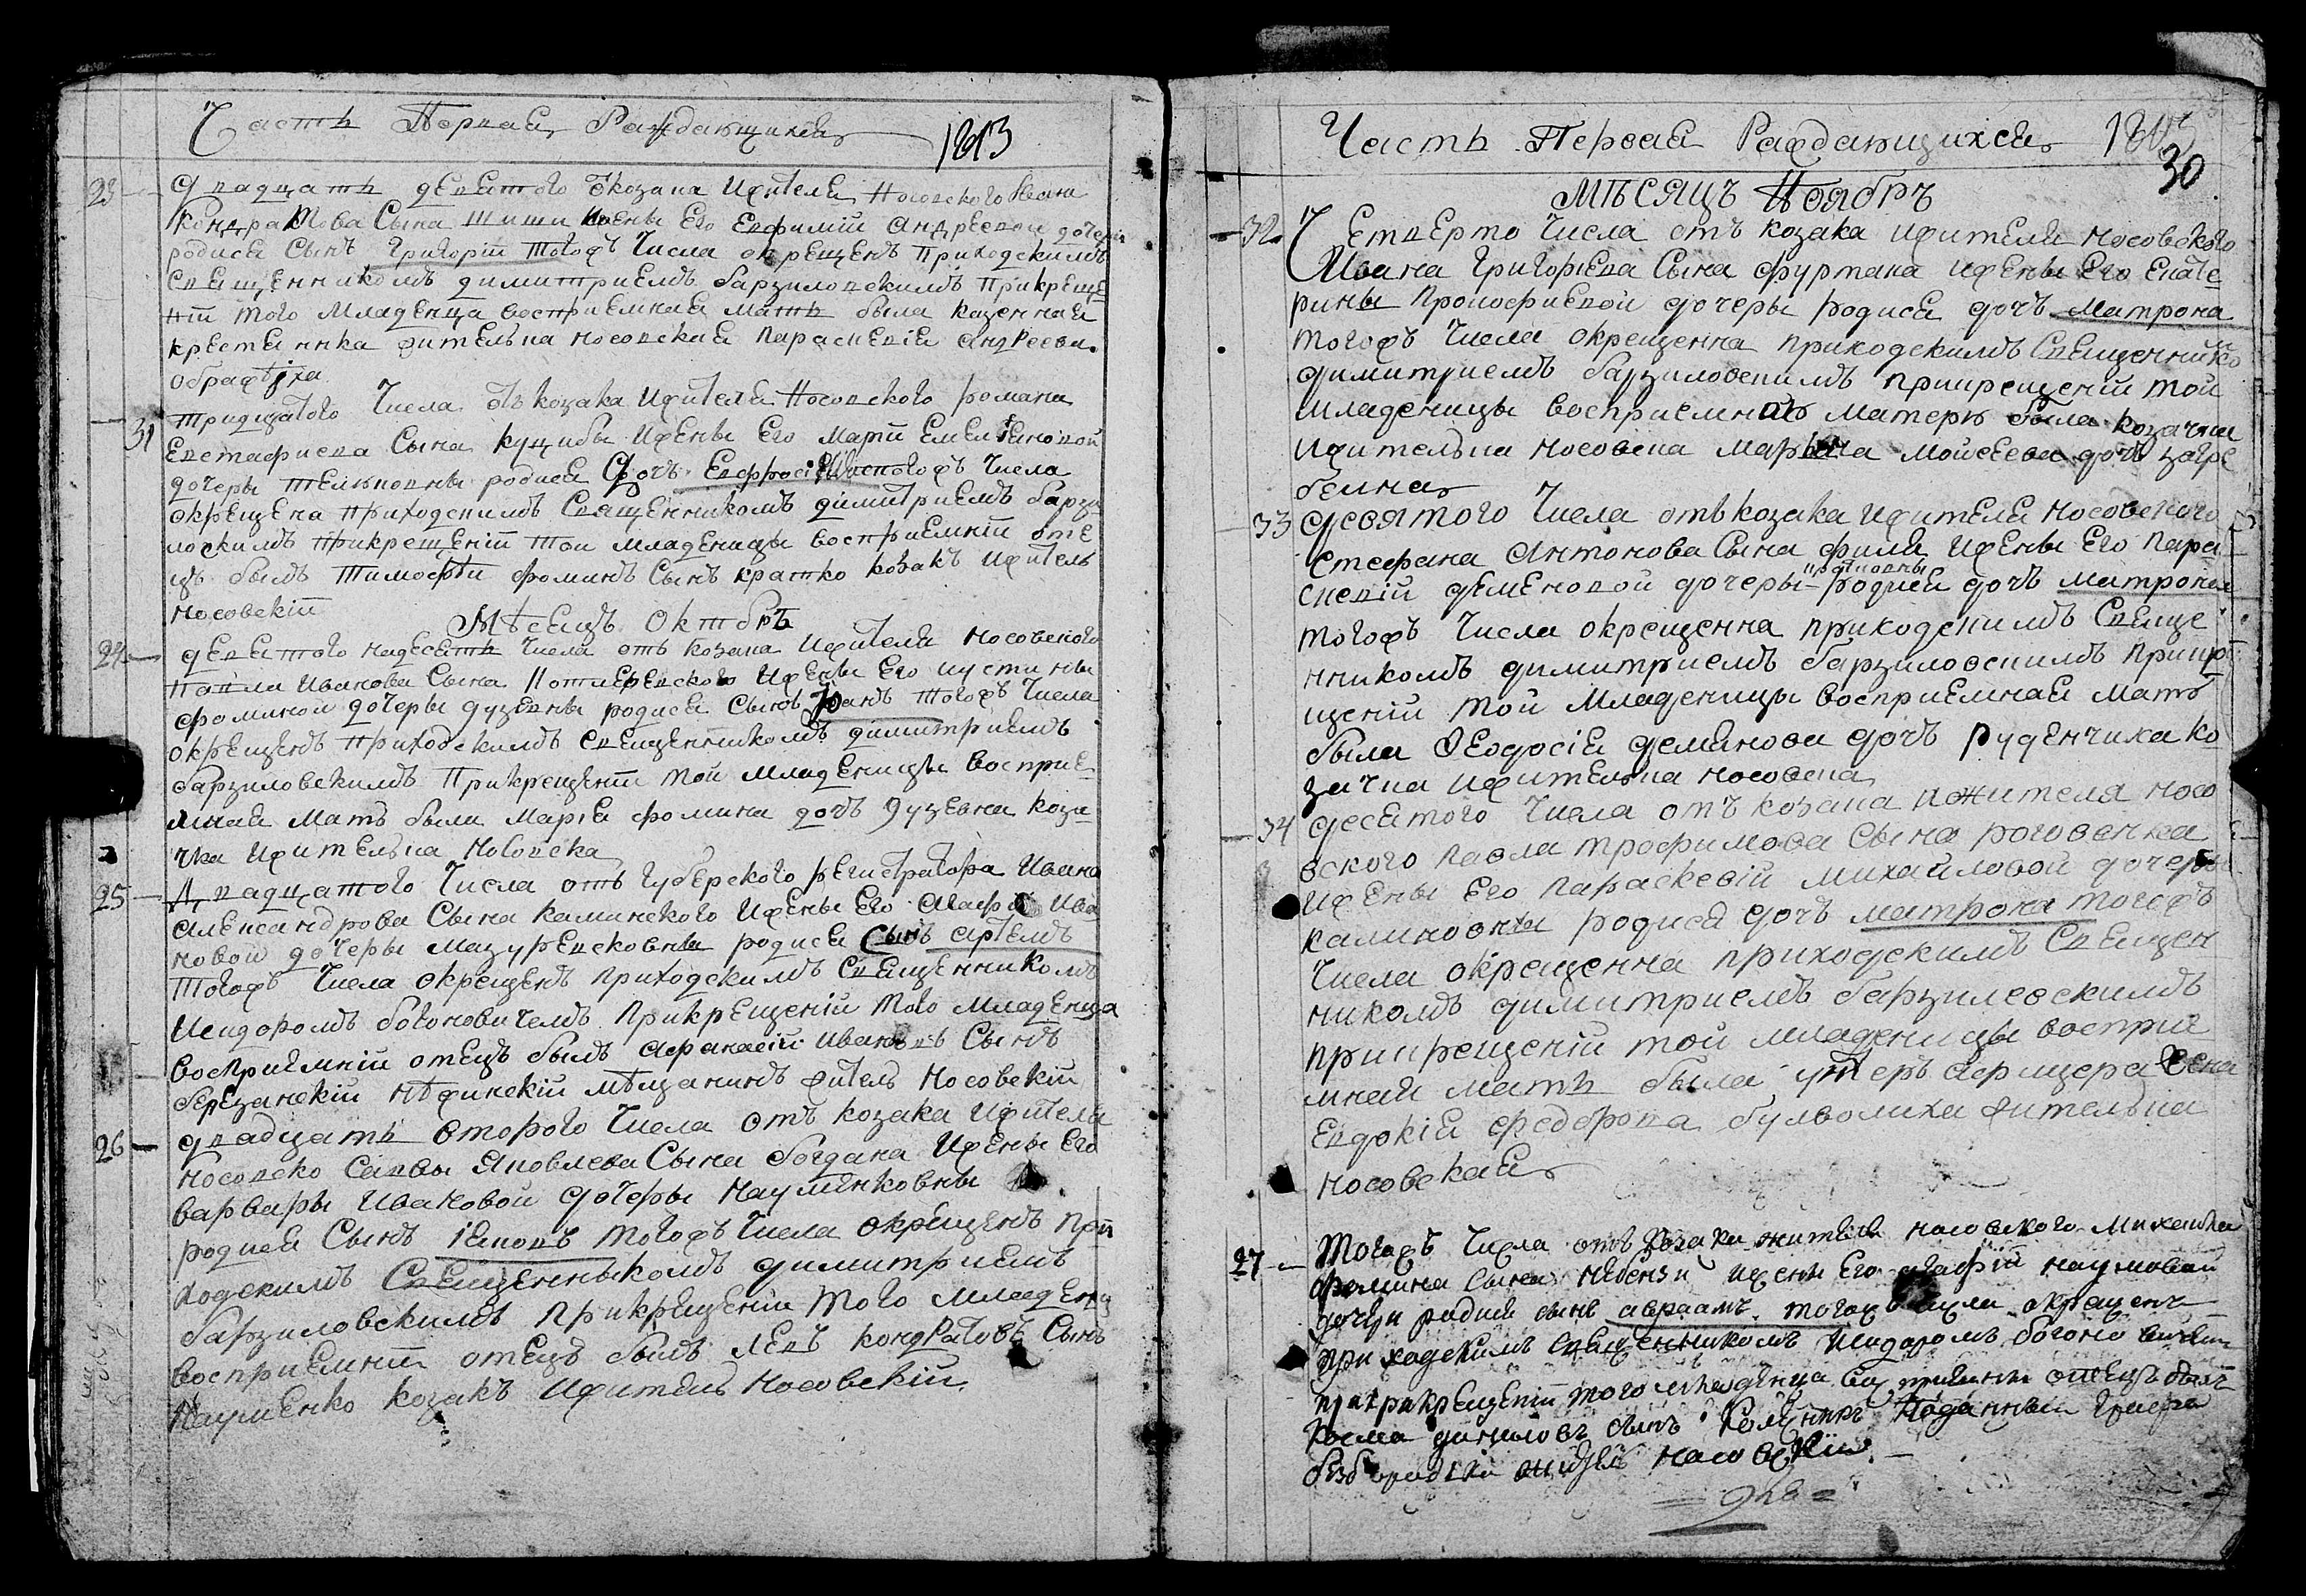 Часть Первая Раждающихся 1813
23 Двадцать девятого ѿ козака Ижителя Носовского Ивана
Кондратова Сына Шиши Жены Его Евфимій Андреевои дочери
родися Сынъ Григорій Тогожъ Числа окрещенъ Приходскимъ
Священникомъ димитриемъ барзиловскимъ Прикреще
ніи того Младенца восприемная мать была казенная
крестянка жителька носовская Параскевія Андреева
Тридцатого Числа ѿ козака Ижителя Носовского романа
31 Евстафиева Сына Куциубы Ижены Его Марти Емелiяновой
дочеры родися Дочъ Тогожъ Числа
окрещена приходскимъ Священникомъ димитриемъ барзи
ловскимъ прикрещеніи той младеницы восприемніи оте
цъ былъ Тимофѣи фоминъ Сынъ кратко козакъ Ижитель
носовскій
Мѣсяцъ Октобръ
24 девятого надесять Числа отъ козака Ижителя носовского
Павла Иванова Сына Ижены Его иустины
фоминои дочеры дузевны родися Сынъ Іоанъ Тогожъ Числа
окрещенъ приходскимъ Священникомъ димитриемъ
барзиловскимъ Прикрещеніи той младеницы восприе
мная мать была Марія фомина дочъ дузевна коза
чка Ижителька Носовска
25 Двадцатого Числа отъ губерского регистратора Ивана
Александрова Сына каминского Ижены Его Ива
новои дочеры мазуревсковны родися Сынъ артемъ
Тогожъ Числа окрещенъ приходскимъ Священникомъ
Исидоромъ богоновичемъ Прикрещеніи того младенца
восприемній отецъ былъ Афанасій Ивановъ Сынъ
березанскій нѣжинскій мѣщанинъ житель носовскій
26 двадцать второго Числа отъ козака Ижителя
носовско Саввы Яковлева Сына богдана Ижены Его
варвары Ивановой дочеры наумѣнковны
родися Сынъ Іяковъ тогожъ Числа окрещенъ При
ходскимъ Священныкомъ димитриемъ
барзиловскимъ прикрещеніи того младенц
восприемніи отецъ былъ левъ кондратовъ Сынъ
Науменко козакъ Ижитель Носовскій
Часть Первая Раждающихся 1813
30
Мѣсяцъ Ноябръ
32 Четверто Числа отъ козака ижителя носовского
Ивана григориева Сына фуртака Ижены Его Екате
рины Прокофиевой дочеры родися дочъ Матрона
тогожъ Числа окрещенна приходскимъ Священнико
димитриемъ барзиловскимъ прикрещеніи той
младеницы восприемна матеръ была козачка
ижителька носовска Мойсеева дочъ загре
белна
33 Девятого Числа отъ козака Ижителя носовского
Стефана Антонова Сына филя Ижены Его Пара
скевій деменовой дочеры родися дочъ Матрона
тогожъ Числа окрещенна приходскимъ Свяще
нникомъ димитриемъ барзиловскимъ Прикре
щеніи той младеницы восприемная мать
была Ѳеодосія демянова дочъ руденчиха ко
зачка ижителька носовска
34 десятого Числа отъ козака ижителя носо
вского Павла трофимова Сына роговенка
Ижены Его параскевій михайловой дочеры
калиновны родися дочъ матрона тогожъ
Числа окрещенна приходскимъ Священ
никомъ димитриемъ барзилевскимъ
прикрещеніи той младеницы восприе
мная мать была унтеръ афицера жена
Евдокія федорова булволиха жителька
носовская
27 Тогожъ Числа отъ козака жителя носовского Михаила
фомина сына Небензи ижены Его агафіи наумовой
дочери родися сынъ авраамъ тогожъ числа окрещенъ
приходскимъ священникомъ Исидоромъ богоновичемъ
прикрещеніи того младенца восприемни отецъ былъ
Косма даниловъ сынъ подданный графа
безбородка житель носовскій